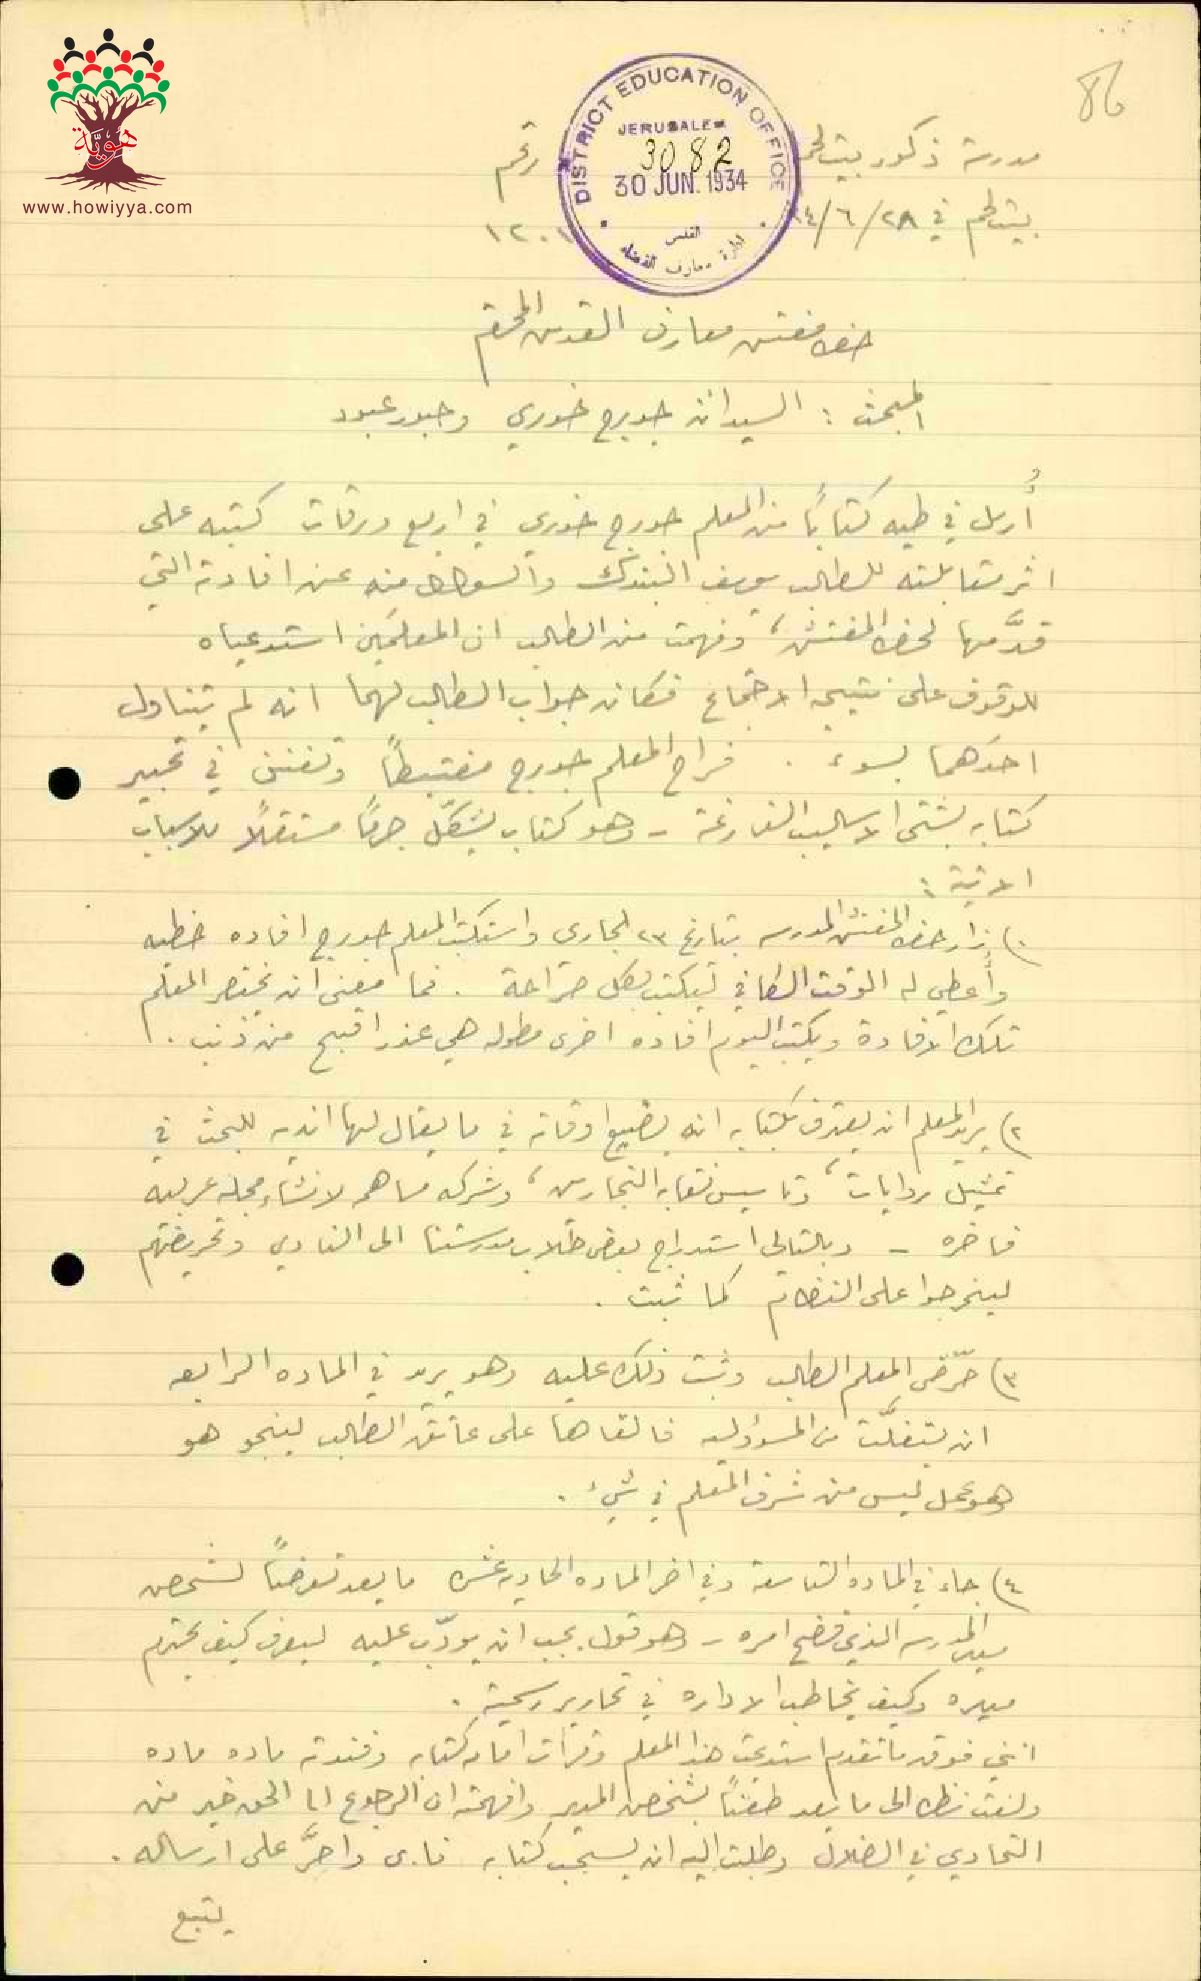 86
هويّة
www.howiyya.com
DISTRICT EDUCATION OFFICE
JERUSALEM
3082
30 JUN. 1934
القدس
ادارة معارف القضاء
مدرسة ذكور بيت لحم
رقم
بيت لحم في ٢٨/٦/
١٢٠١
حضرة مفتش معارف القدس المحترم
المبحث : السيدان جورج خوري وجبور عبود
أرسل في طيه كتابًا من المعلم جورج خوري في اربع ورقات كتبه على
اثر مقابلته للطالب يوسف البندك والسؤال منه عن افادته التي
قدَّمها لحضرة المفتش، وفهمت من الطالب ان المعلمَين استدعياه
للوقوف على نتيجة الاجتماع فكان جواب الطالب لهما انه لم يتناول
احدَهما بسوء . فراح المعلم جورج مغتبطًا وتفنن في تحبير
كتابه بشتى الاساليب الفارغة – وهو كتاب يشكّل جرمًا مستقلًا للاسباب
الاتية :
١) زار حضرة المفتش المدرسه بتاريخ ٢٣ الجاري واستكتب المعلم جورج افاده خطيه
وأُعطي له الوقت الكافي ليكتب بكل صراحة . فما معنى ان يختصر المعلم
تلك الافادة ويكتب اليوم افاده اخرى مطوله هي عذر اقبح من ذنب .
٢) يريد المعلم ان يعترف بكتابه انه يضيع اوقاته في ما يقال لها انديه للبحث في
تمثيل روايات، وتاسيس نقابه النجارين، وشركه مساهمه لانشاء مجله عربيه
فاخره – وبالتالي استدراج بعض طلاب مدرستنا الى النادي وتحريضهم
ليخرجوا على النظام كما ثبت .
٣) حرّض المعلم الطالب وثبت ذلك عليه وهو يريد في الماده الرابعه
ان يتفلَّت من المسؤوليه فالقاها على عاتق الطالب لينجو هو
وهو عمل ليس من شرف المعلم في شيء .
٤) جاء في الماده التاسعة وفي اخر الماده الحاديه عشره ما يعد تعرضًا لشخص
مدير المدرسه الذي فضح امره – وهو قول يجب ان يودّب عليه ليعرف كيف يحترم
مديره وكيف يخاطب الاداره في تحارير رسمية .
انني فوق ما تقدم استدعيت هذا المعلم وقرأت امامه كتابه وفندته ماده ماده
ولفت نظره الى ما يعد طعنًا بشخص المدير وافهمته ان الرجوع الى الحق خير من
التمادي في الضلال وطلبت اليه ان يسحب كتابه فابى واصرَّ على ارساله .
يتبع